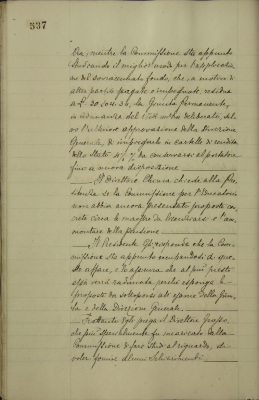 337
Ora, mentre la Commissione sta appunto
studiando il miglior modo per l'applicazio
ne del sovraccennato fondo, che, a motivo di
altre pagate o impegnate, residua
a £. 20.504.34, la Giunta Permanente,
in adunanza del deliberato, sal-
vo l'ulteriore approvazione della Direzione
Generale, di impiegarlo in cartelle di rendita
dello Stato 4% da conservarsi al portatore
fino a nuova disposizione.
Il Direttore chiede alla Pre-
sidenza se la Commissione per l'Educatorio
non abbia ancora presentato proposte con-
crete circa le da beneficarsi e l'am-
montare della pensione.
Il Presidente Gli risponde che la Com-
missione sta appunto occupandosi di que-
st'affare, e lo assicura che al più presto
essa verrà radunata perchè esponga le
proposte da sottoporsi all'esame della Giun-
ta e della Direzione Generale.
Frattanto Egli prega il Direttore Grasso,
che più specialmente fu incaricato dalla
Commissione di fare studi al riguardo, di
voler fornire alcuni schiarimenti.